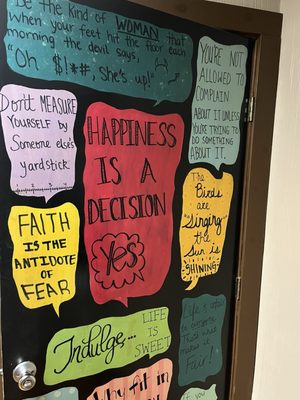 Be the kind of WOMAN that
when your feet hit the floor each
morning the devil says,
"Oh $!*&, She's up!"
YOU'RE NOT
ALLOWED TO
COMPLAIN
ABOUT IT UNLESS
YOU'RE TRYING TO
DO SOMETHING
ABOUT IT.
Don't MEASURE
YOURSELF BY
Someone else's
yardstick
HAPPINESS
IS A
DECISION
yes
The
Birds
are
"Singing"
the
Sun is
SHINING
FAITH
IS THE
ANTIDOTE
OF
FEAR
Indulge...
LIFE
IS
SWEET
Life is
That
makes it
Fair!
Why fit in